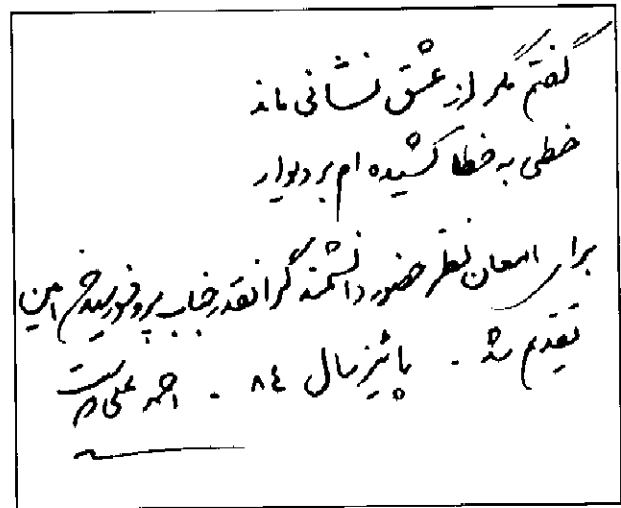 گفتم مگر از عشق نشانی ماند
خطی به خطا کشیده ام بر دیوار
برای امعان نظر حضور دانشمند گرانقدر جناب پروفسور سید امین
تقدیم شد - پائیز سال ۸٤ - احمد علی